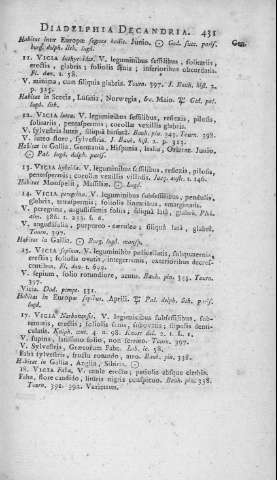 DIADELPHIA DECANDRIA. 431
Habitat inter Europæ segetes hodie. Junio. ☉ God. succ. parif. Gen.
burg. dalph. lith. lugd.
11. VICIA lathyroides. V. leguminibus sessilibus, solitariis,
erectis, glabris; foliolis senis; inferioribus obcordatis.
Fl. dan. t. 58.
V. minima, cum siliquis glabris. Tourn. 397. I. Bauh. hist. 2.
p. 313.
Habitat in Scotia, Lusatia, Norwegia, &c. Maio. Gal. pat.
lugd. lith.
12. VICIA lutea. V. leguminibus sessilibus, reflexis, pilosis,
solitariis, pentaspermis; corollæ vexillis glabris.
V. sylvestris lutea, siliqua hirsuta. Bauh. pin. 345. Tourn. 398.
V. luteo flore, sylvestris. I. Bauh. hist. 2. p. 313.
Habitat in Gallia, Germania, Hispania, Italia, Oriente. Junio.
☉ Pal. lugd. dalph. parif.
13. VICIA hybrida. V. leguminibus sessilibus, reflexis, pilosis,
pentaspermis; corollæ vexillis villosis. Jacq. austr. t. 146.
Habitat Monspelii, Massiliæ. ☉ Lugd.
14. VICIA peregrina. V. leguminibus subsessilibus, pendulis,
glabris, tetraspermis; foliolis linearibus, emarginatis.
V. peregrina, angustissimis foliis; siliqua lata, glabra. Pluk.
alm. 386. t. 233. f. 6.
V. angustifolia, purpureo-cæruleo; siliqua lata, glabra.
Tourn. 397.
Habitat in Gallia. ☉ Burg. lugd. monsp.
15. VICIA sepium. V. leguminibus pedicellatis, subquaternis,
erectis; foliolis ovatis, integerrimis, exterioribus decres-
centibus. Fl. dan. t. 699.
V. sepium, folio rotundiore, acuto. Bauh. pin. 345. Tourn.
397.
Vicia. Dod. pempt. 531.
Habitat in Europæ sepibus. Aprili. Pal. dalph. lith. parif.
lugd.
17. VICIA Narbonensis. V. leguminibus subsessilibus, sub-
erectis; foliolis senis, subovatis; stipulis denti-
culatis. Kniph. cent. 4. n. 98.
V. supina, latissimo folio, non serrato. Tourn. 397.
V. Sylvestris, Græcorum Faba. Lob. ic. 58.
Faba sylvestris, fructu rotundo, atro. Bauh. pin. 338.
Habitat in Gallia, Anglia, Sibiria. ☉
18. VICIA Faba. V. caule erecto; petiolis absque cirrhis.
Faba, flore candido, lituris nigris conspicuo. Bauh. pin. 338.
Tourn. 391. 392. Varietates.